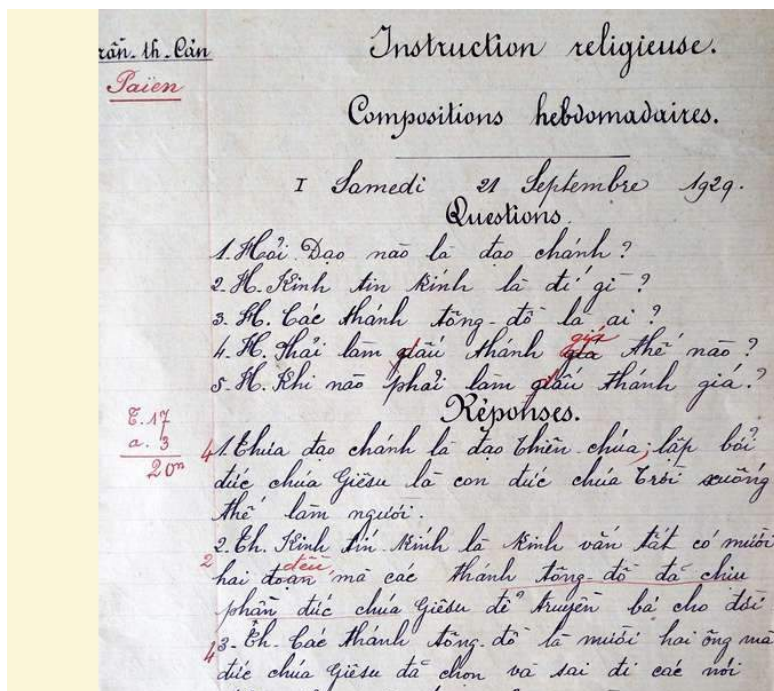 rần. th. Cản
Païen
Instruction religieuse.
Compositions hebdomadaires.
I Samedi 21 Septembre 1929.
Questions.
1. Hỏi. Đạo nào là đạo chánh ?
2. H. Kinh tin kính là đí gì ?
3. H. Các thánh tông-đồ là ai ?
4. H. Phải làm dấu thánh giá thế nào ?
5. H. Khi nào phải làm dấu thánh giá ?
Réponses.
T. 17
a. 3
20m
4 1. Thưa đạo chánh là đạo Thiên-chúa; lập bởi
đức chúa Giêsu là con đức chúa Trời xuống
thế làm người.
2. Th. Kinh tin kính là kinh vắn tắt có mười
2 hai đoạn điều mà các thánh tông-đồ đã chịu
phán đức chúa Giêsu để truyền bá cho đời
4 3. Th. Các thánh tông-đồ là mười hai ông mà
đức chúa Giêsu đã chọn và sai đi các nơi